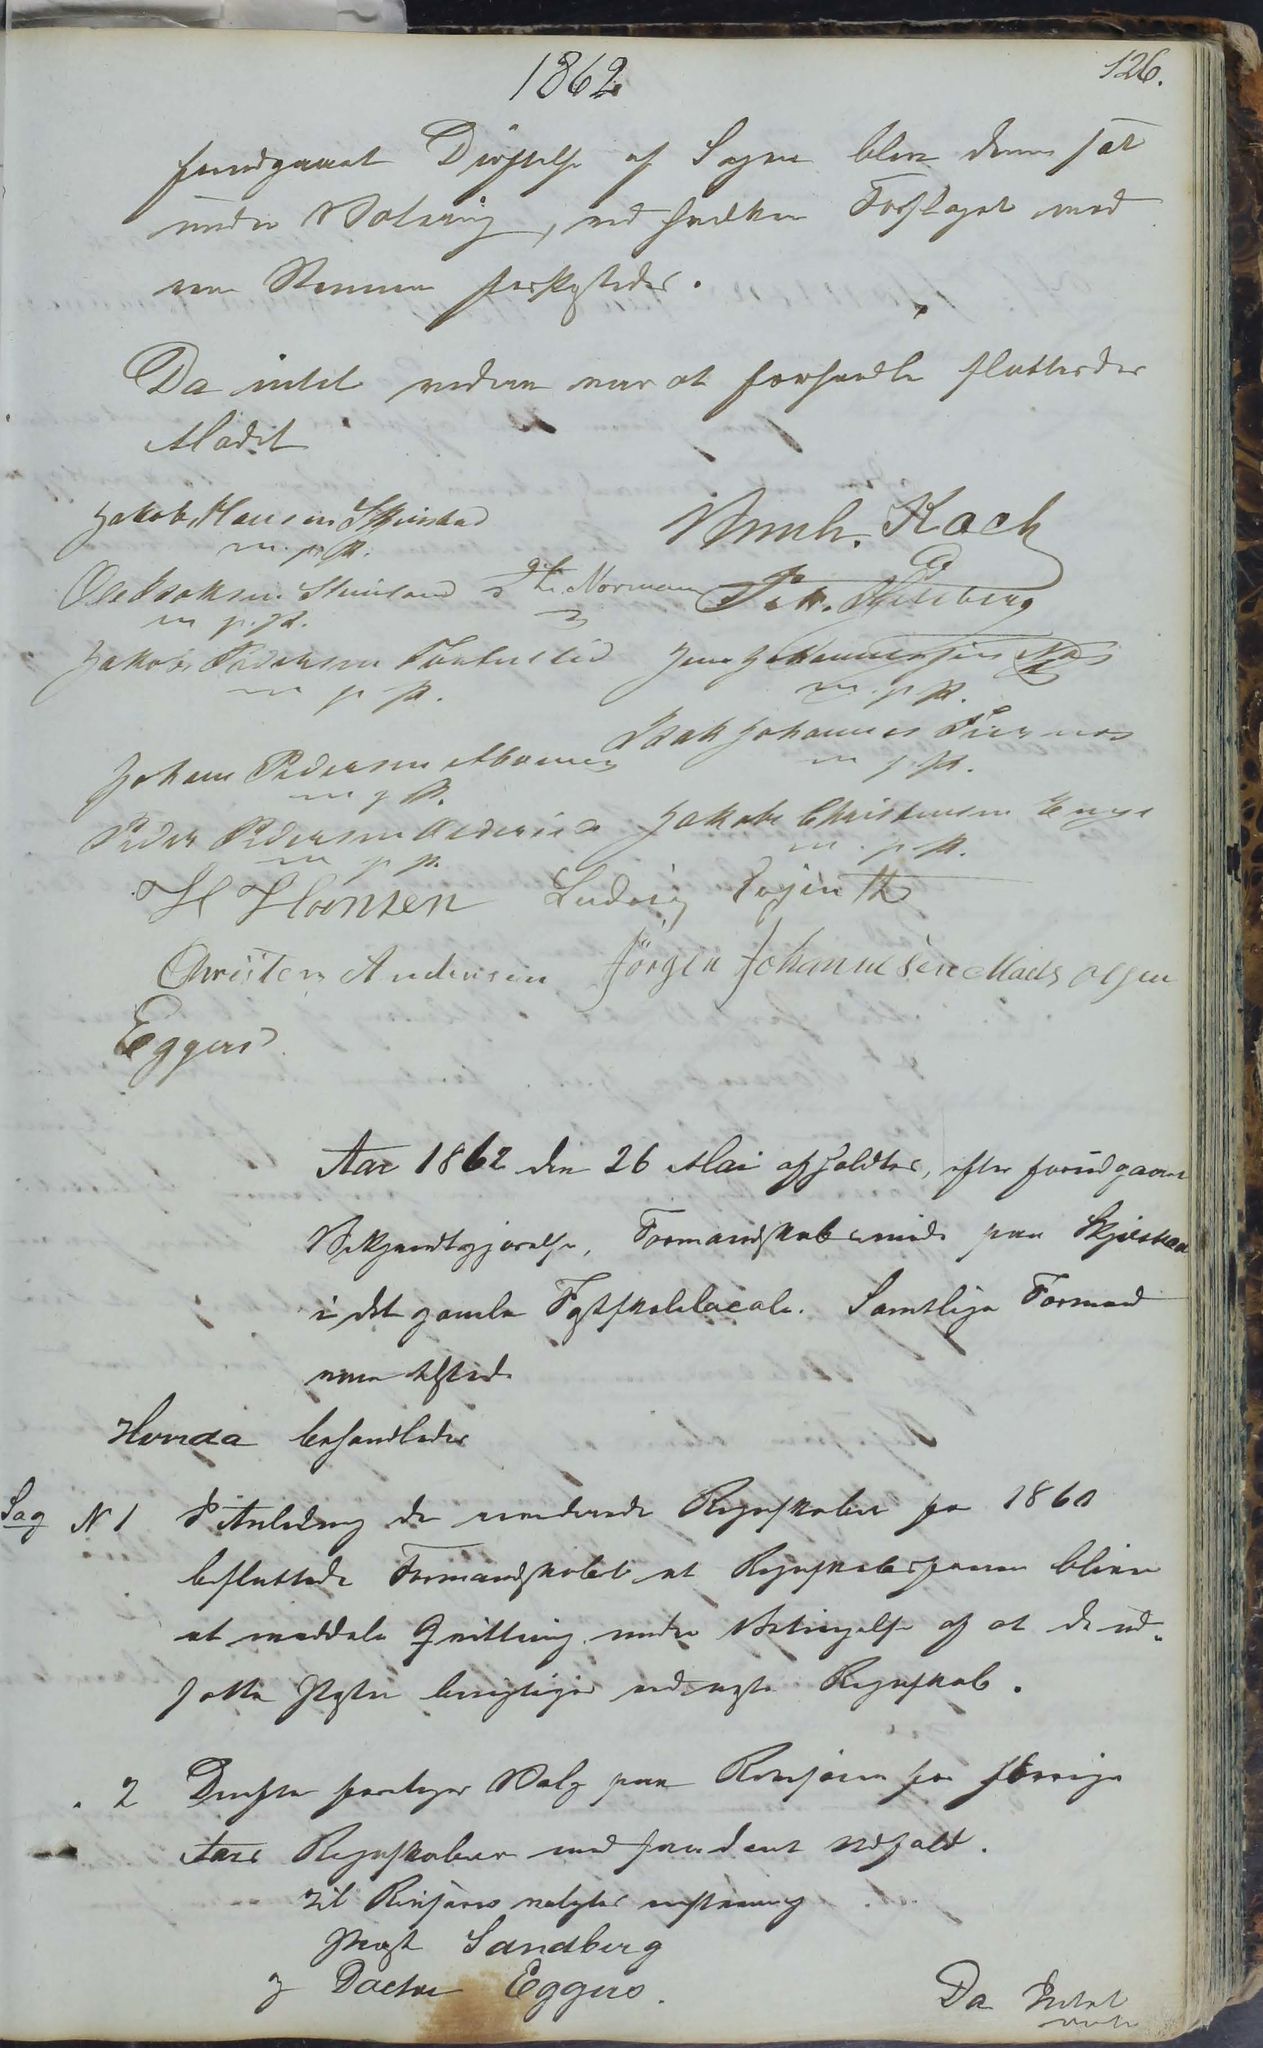 1862
126.
forudgaaet Drøftelse af Sagen blev denne sat
under Votering, ved hvilken Forslaget med
een Stemme forkastedes.
Da intet videre var at forhandle sluttedes
Mødet
Jakob Hansen
m. p. P.
Koch
m. p. P.
Norman
Jakob Pedersen
m p P.
m. p. P.
Isak Johannes
m p P.
Johan Pedersen
m p P.
Peder Pedersen
m p p.
Jakob Christensen
m. p. P.
H Hansen Ludvig
Christen Andersen Jørgen Johannesen Mads Olsen
Eggers
Aar 1862 den 26 Mai afholdtes, efter forudgaaen
Bekjendtgjørelse, Formandskabsmøde paa Skjerstad
i det gamle Fastskolelocale. Samtlige Formænd
vare tilstede
Hvorda behandledes
Sag N 1 I Anledning de reviderede Regnskaber for 1860
besluttede Formandskabet at Regnskabsføreren bliver
at meddele Qvittering under Betingelse af at de ud-
satte Poster berigtiges ved næste Regnskab.
" 2 Derefter foretoges Valg paa Revisorer for forrige
Aars Regnskaber med saadant Udfald.
Til Revisorer valgtes enstemmig
Præst Sandberg
og Doctor Eggers.
Da Intet